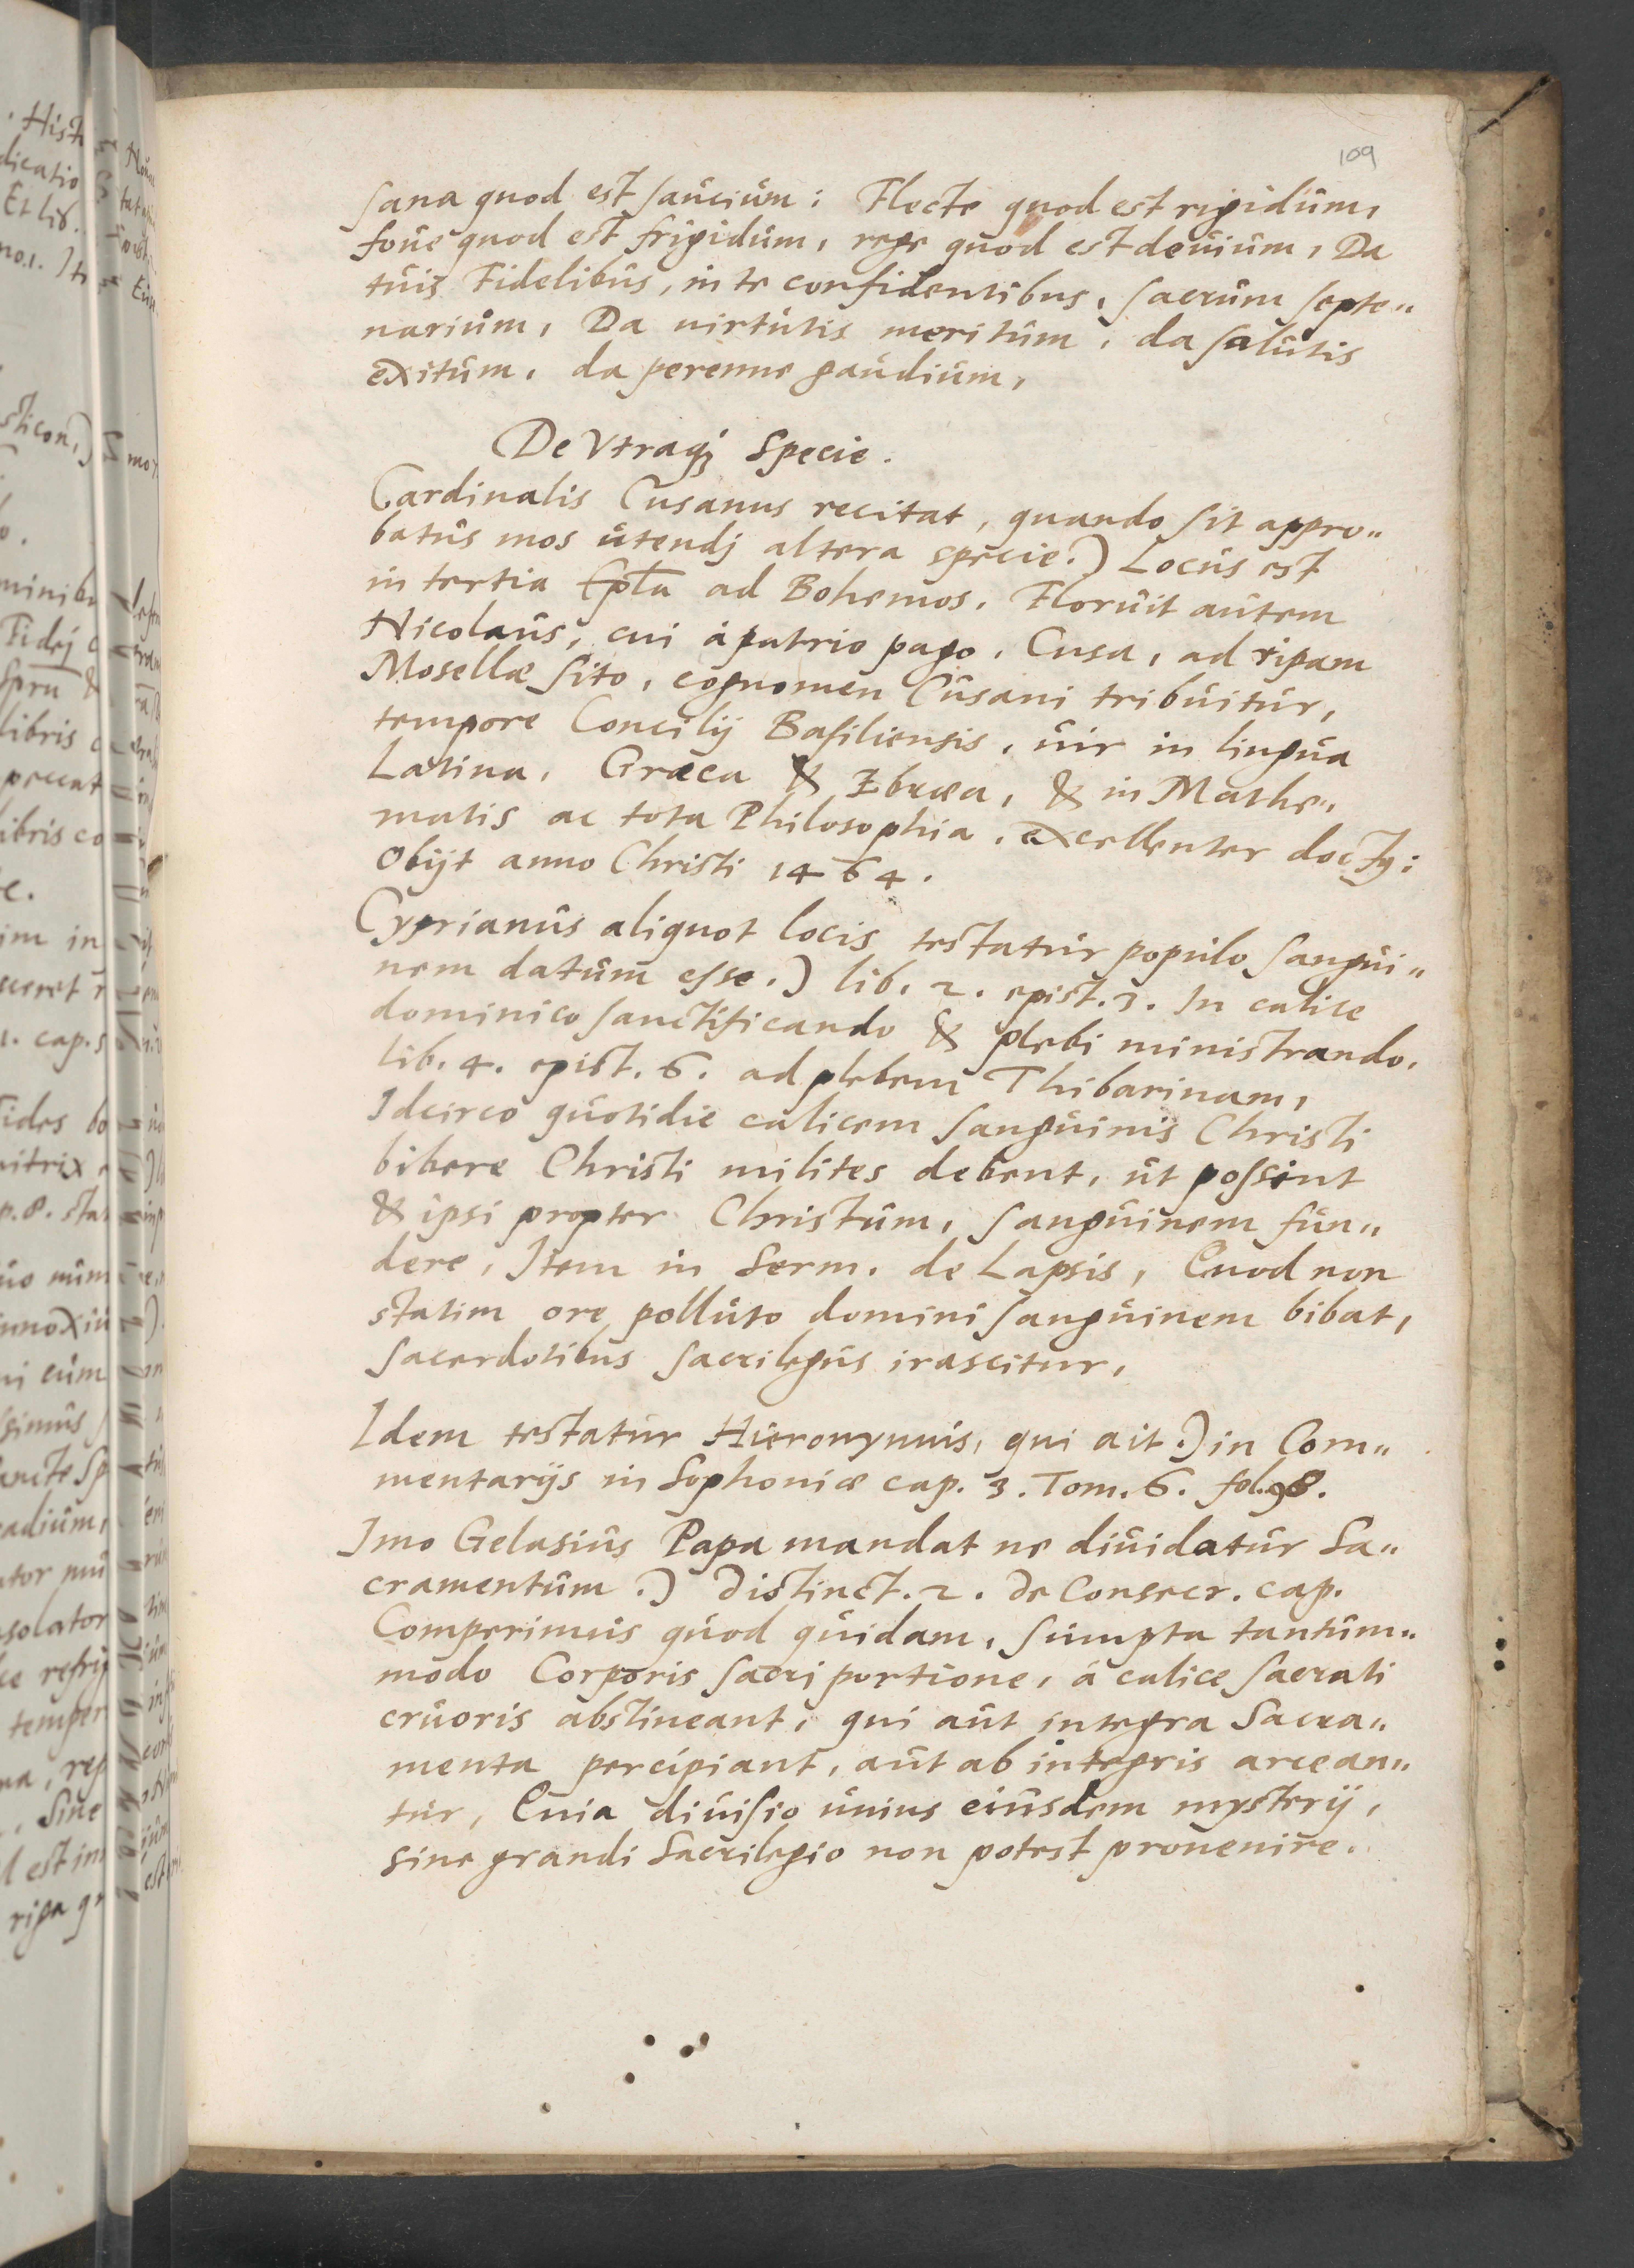 109
sana quod est saucium: Flecte quod est rigidum,
foue quod est frigidum, rege quod est deuium, Da
tuis Fidelibus, in te confidentibus, sacrum septe„
narium, Da uirtutis meritum, da salutis
exitum, da perenne gaudium,
De Vtraqꝫ Specie.
Cardinalis Cusanus recitat, quando sit appro„
batus mos utendj altera specie.) Locus est
in tertia Ep̅la ad Bohemos. Floruit autem
Nicolaus, cui à patrio pago, Cusa, ad ripam
Mosellæ sito, cognomen Cusani tribuitur,
tempore Concilij Basiliensis, uir in lingua
Latina, Græca & Ebræa, & in Mathe„
matis ac tota Philosophia, excellenter doctꝰ:
Obijt anno Christi 1464.
Cyprianus aliquot locis testatur populo sangui„
nem datum esse.) lib. 2. epist. 3. In calice
dominico sanctificando & plebi ministrando.
lib. 4. epist. 6. ad plebem Thibarinam,
Idcirco quotidie calicem sanguinis Christi
bibere Christi milites debent, ut possint
& ipsi propter Christum, sanguinem fun„
dere, Item in Serm. de Lapsis, Quod non
statim ore polluto domini sanguinem bibat,
sacerdotibus sacrilegus irascitur,
Idem testatur Hieronymus, qui ait.) in Com„
mentarijs in Sophoniæ cap. 3. Tom. 6. fol. 98.
Imo Gelasius Papa mandat ne diuidatur Sa„
cramentum.) Distinct. 2. de Consecr. cap.
Comperimus quod quidam, sumpta tantum„
modo Corporis sacri portione, à calice sacrati
cruoris abstineant, qui aut integra Sacra„
menta percipiant, aut ab integris arcean„
tur, Quia diuisio unius eiusdem mysterij,
sine grandi Sacrilegio non potest prouenire.